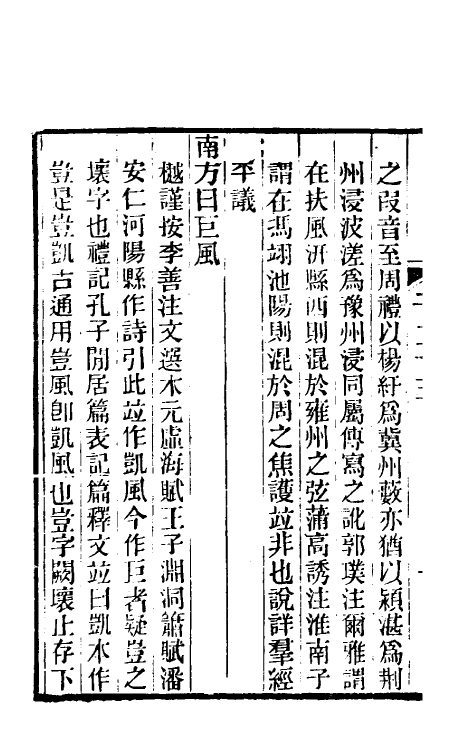 之叚音至周禮以楊紆爲冀州藪亦猶以潁湛爲荆
州浸波溠爲豫州浸同屬傳寫之訛郭璞注爾雅謂
在扶風汧縣西則混於雍州之弦蒲高誘注淮南子
謂在馮翊池陽則混於周之焦護竝非也說詳羣經
平議
南方曰巨風
樾謹按李善注文選木元虛海賦王子淵洞簫賦潘
安仁河陽縣作詩引此竝作凱風今作巨者疑豈之
壞字也禮記孔子閒居篇表記篇釋文竝曰凱本作
豈是豈凱古通用豈風卽凱風也豈字闕壞止存下